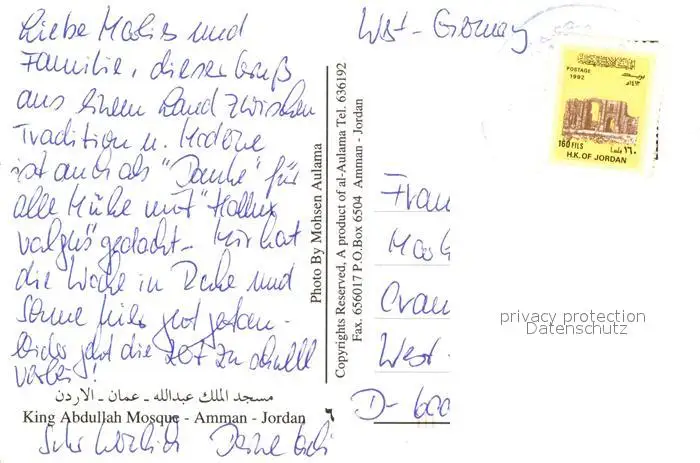 Liebe und
Familie, dieser Gruß
aus einem Land zwischen
Tradition u. Moderne
ist auch als "Danke" für
alle Mühe mit "Hallux
valgus" gedacht. Mir hat
die Woche in und
Sonne hier gut getan.
Leider geht die Zeit zu schnell
vorbei!
مسجد الملك عبدالله ـ عمان ـ الاردن
King Abdullah Mosque - Amman - Jordan
٦
Sehr herzlich Deine
Photo By Mohsen Aulama
Copyrights Reserved, A product of al-Aulama Tel. 636192
Fax. 656017 P.O.Box 6504 Amman - Jordan
West-Germany
POSTAGE
1992
بريد
160 FILS ١٦٠ فلسا
H.K. OF JORDAN
Frau
West-
D-
privacy protection
Datenschutz